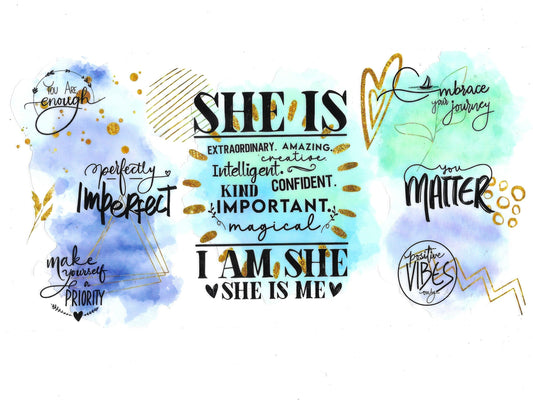 You Are
enough
perfectly
Imperfect
make
yourself
a
PRIORITY
SHE IS
EXTRAORDINARY. AMAZING.
creative.
Intelligent.
KIND CONFIDENT.
IMPORTANT.
magical.
I AM SHE
SHE IS ME
Embrace
your
journey
you
MATTER
positive
VIBES
only